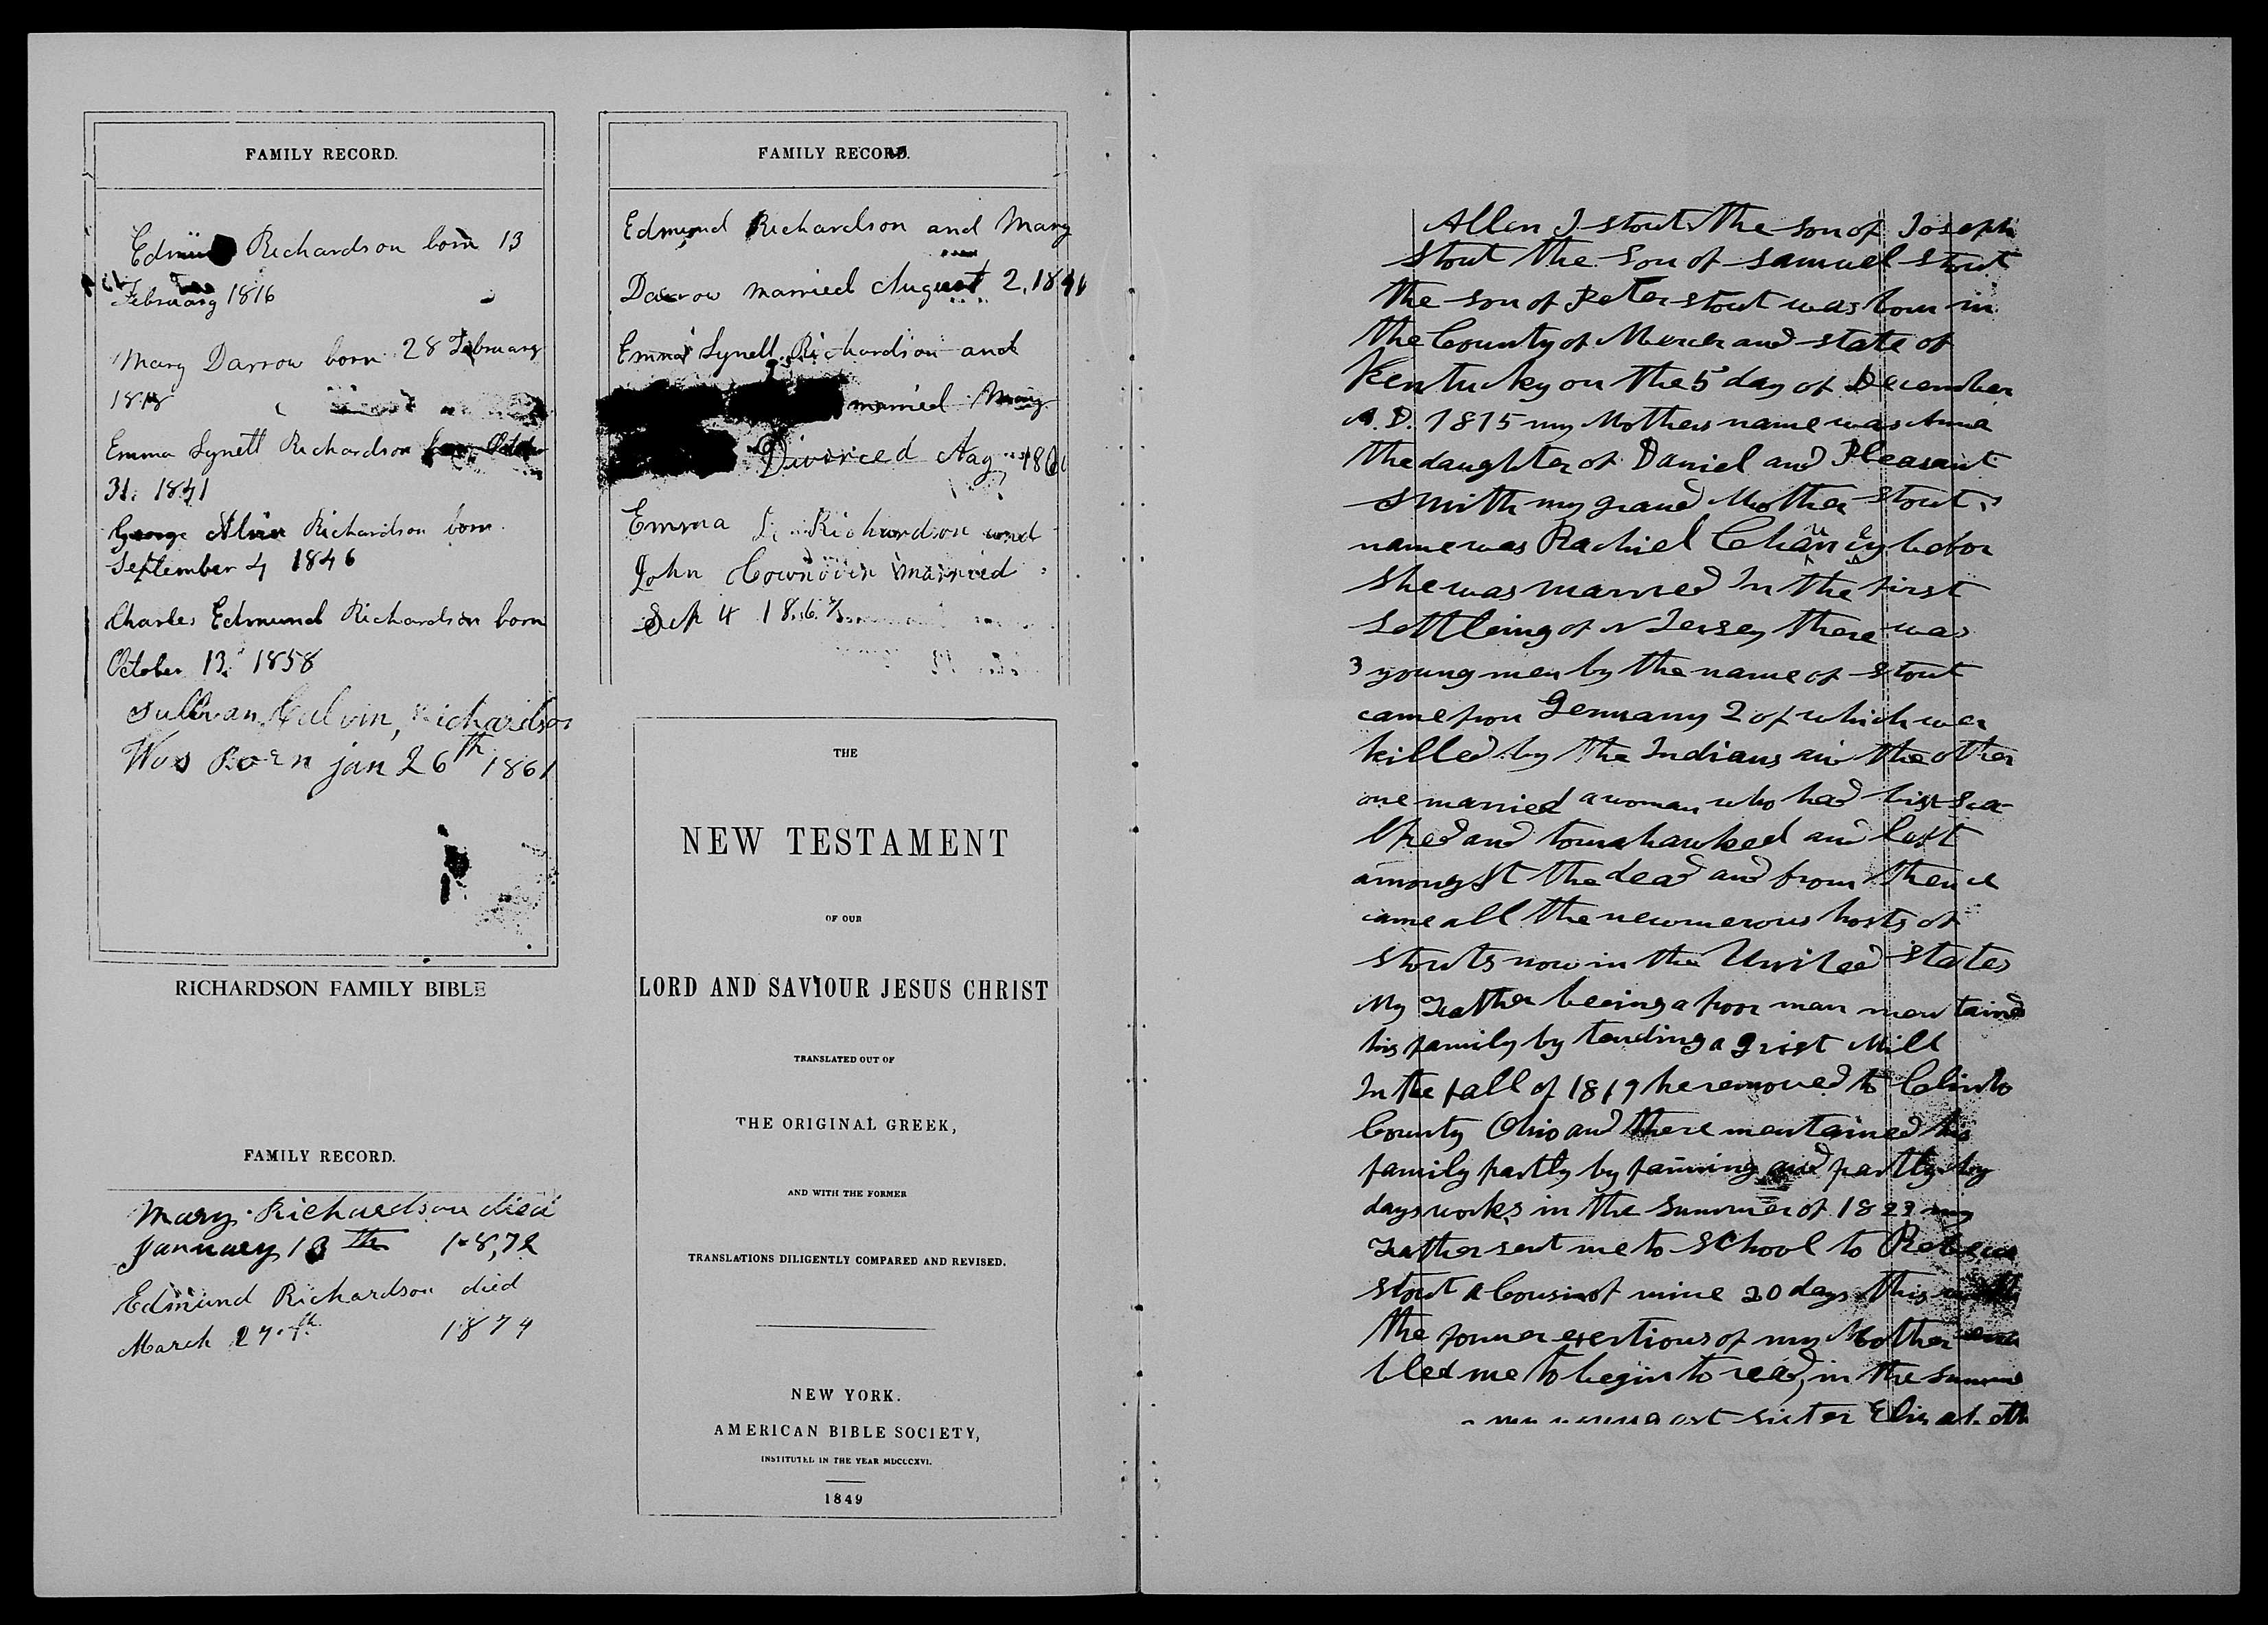 FAMILY RECORD.
Edmund Richardson born 13
February 1816
Mary Darrow born 28 February
1818
Emma Lynett Richardson born October
31. 1841
George Alvin Richardson born
September 4 1846
Charles Edmund Richardson born
October 13. 1858
Sullivan, Calvin, Richardson
Was Born jan 26th 1861
RICHARDSON FAMILY BIBLE
FAMILY RECORD.
Mary Richardson died
January 13th 1872
Edmund Richardson died
March 27.th 1874
FAMILY RECORD.
Edmund Richardson and Mary
Darrow married August 2, 18
Emma Lynett Richardson and
married May
Divorced Aug
Emma L. Richardson and
John Cownover married
Sep 4 186
THE
NEW TESTAMENT
OF OUR
LORD AND SAVIOUR JESUS CHRIST
TRANSLATED OUT OF
THE ORIGINAL GREEK,
AND WITH THE FORMER
TRANSLATIONS DILIGENTLY COMPARED AND REVISED.
NEW YORK.
AMERICAN BIBLE SOCIETY,
INSTITUTED IN THE YEAR MDCCCXVI.
1849
Allen J stout the son of Joseph
stout the son of samuel stout
the son of Peter stout was born in
the County of Mercer and state of
Kentucky on the 5 day of December
A. D. 1815 my Mothers name was Anna
the daughter of Daniel and Pleasant
smith my grand Mother stouts
name was Rachiel Chancey befor
she was married In the first
settleing of N Jersey there was
3 young men by the name of stout
came from Germany 2 of which wer
killed by the Indians and the other
one married a woman who had bin sca-
lped and tomahawked and left
amongst the dead and from thence
came all the newmerous hosts of
stouts now in the United states
My Father beeing a poor man mentained
his family by tending a grist Mill
In the fall of 1819 he removed to Clinto
County Ohio and there mentained his
family partly by farming and partly by
days works in the summer of 1823 my
Father sent me to school to Rebecca
stout a Cousin of mine 20 days this with
the former exertions of my Mother ena
bled me to begin to read, in the summer
sister Elisabeth